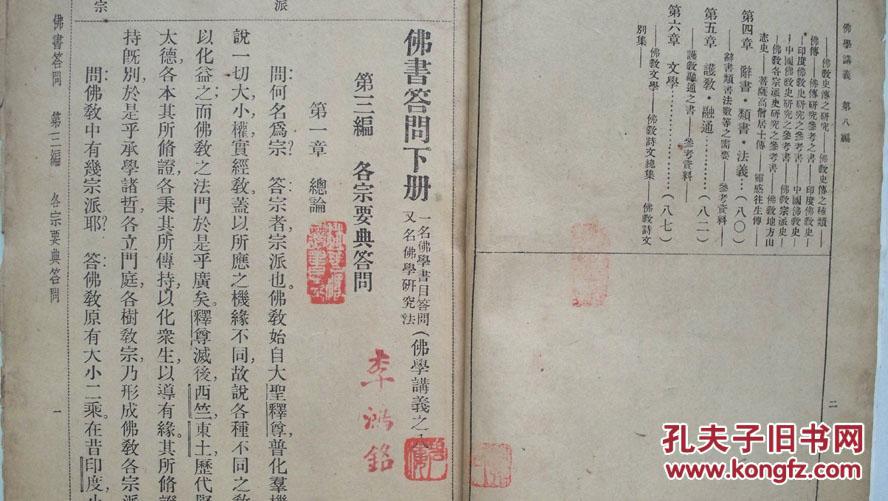 佛學講義 第八編
——佛敎史傳之研究——佛敎史傳之種類——
佛傳——佛傳研究參考書——印度佛敎史——
印度佛敎史研究之參考書——中國佛敎史——
中國佛敎史研究之參考書——佛敎宗派史——
佛敎各宗派史研究之參考書——佛敎地方山
志史——菩薩高僧居士傳——靈感往生傳——
第四章 辭書・類書・法義…(八〇)
——辭書類書法數等之需要——參考資料——
第五章 護敎・融通…………(八二)
——護敎融通之書——參考資料——
第六章 文學…………………(八七)
——佛敎文學——佛敎詩文總集——佛敎詩文
別集——
二
佛書答問下册
一名佛學書目答問
又名佛學研究法
(佛學講義之
第三編 各宗要典答問
第一章 總論
問何名爲宗? 答宗者宗派也佛敎始自大聖釋尊普化羣機
說一切大小權實經敎蓋以所應之機緣不同故說各種不同之敎
以化益之而佛敎之法門於是乎廣矣釋尊滅後,西竺,東土歷代
太德各本其所修證各秉其所傳持以化衆生以導有緣其所修證
持旣別於是乎承學諸哲各立門庭各樹敎宗乃形成佛敎各宗派
問佛敎中有幾宗派耶? 答佛敎原有大小二乘在昔印度
佛書答問 第三編 各宗要典答問
一
派
宗
李鴻銘
孔夫子旧书网
www.kongfz.com